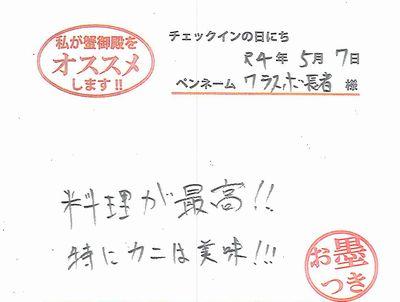 私が蟹御殿を
オススメ
します!!
チェックインの日にち
R4年 5月 7日
ペンネーム ワラスボ長者 様
料理が最高!!
特にカニは美味!!!
お墨
つき